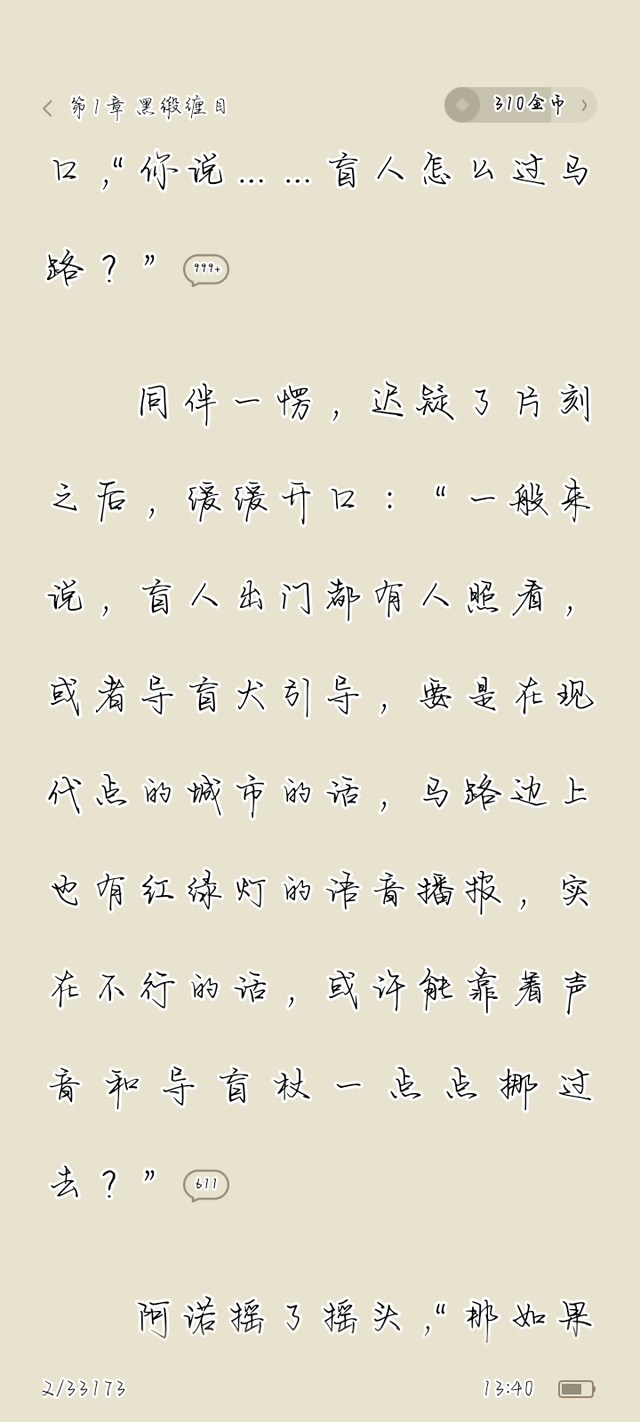 第1章 黑缎缠目
310金币
口，“你说……盲人怎么过马
路？”
999+
同伴一愣，迟疑了片刻
之后，缓缓开口：“一般来
说，盲人出门都有人照看，
或者导盲犬引导，要是在现
代点的城市的话，马路边上
也有红绿灯的语音播报，实
在不行的话，或许能靠着声
音和导盲杖一点点挪过
去？”
611
阿诺摇了摇头，“那如果
2/33173
13:40